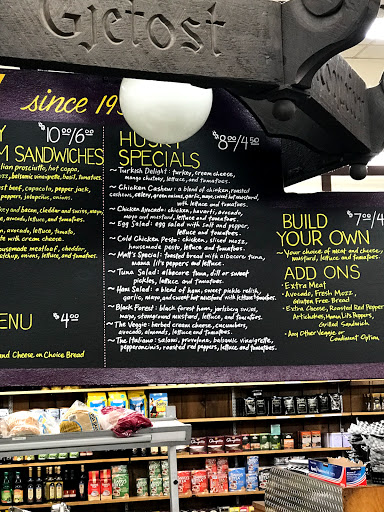 Gjetost
since 19
$10.00/6.00
M SANDWICHES
alian prosciutto, hot coppa,
balsamic vinaigrette, basil, tomatoes.
ast beef, capacola, pepper jack,
peppers, jalapeños, onions.
turkey and bacon, cheddar and swiss, mayo,
avocado, lettuce, and tomatoes.
avocado, lettuce, tomato,
with cream cheese.
housemade meatloaf, cheddar,
ketchup, onions, lettuce, and tomatoes.
ENU $4.00
and Cheese on Choice Bread
HUSKY $8.00/4.50
SPECIALS
~ Turkish Delight: turkey, cream cheese,
mango chutney, lettuce, and tomatoes.
~ Chicken Cashew: a blend of chicken, roasted
cashews, celery, green onions, garlic, mayo, sweet hot mustard,
with lettuce and tomatoes.
~ Chicken Avocado: chicken, havarti, avocado,
mayo and mustard, lettuce, and tomatoes.
~ Egg Salad: egg salad with salt and pepper,
lettuce, and tomatoes.
~ Cold Chicken Pesto: chicken, sliced mozz,
housemade pesto, lettuce, and tomatoes.
~ Matt's Special: toasted bread with albacore tuna,
mama lil's peppers and lettuce.
~ Tuna Salad: albacore tuna, dill or sweet
pickles, lettuce, and tomatoes.
~ Ham Salad: a blend of ham, sweet pickle relish,
garlic, mayo, and sweet hot mustard with lettuce + tomatoes.
~ Black Forest: black forest ham, jarlsberg swiss,
mayo, stoneground mustard, lettuce, and tomatoes.
~ The Veggie: herbed cream cheese, cucumbers,
avocado, almonds, lettuce and tomatoes.
~ The Italiano: salami, provolone, balsamic vinaigrette,
pepperoncinis, roasted red peppers, lettuce and tomatoes.
BUILD $7.00/4
YOUR OWN
~ Your choice of meat and cheese,
mustard, lettuce, and tomatoes.
ADD ONS
• Extra Meat
• Avocado, Fresh Mozz,
Gluten Free Bread
• Extra Cheese, Roasted Red Pepper
Artichokes, Mama Lil's Peppers,
Grilled Sandwich
• Any Other Veggie or
Condiment Option